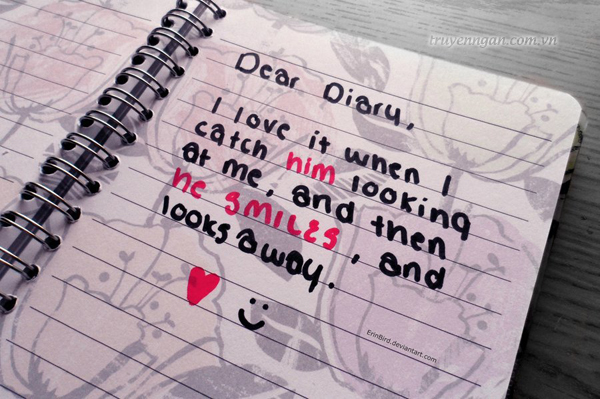 truyenngan.com.vn
Dear Diary,
I love it when I
catch him looking
at me, and then
he SMILES, and
looks away.
ErinBird.deviantart.com